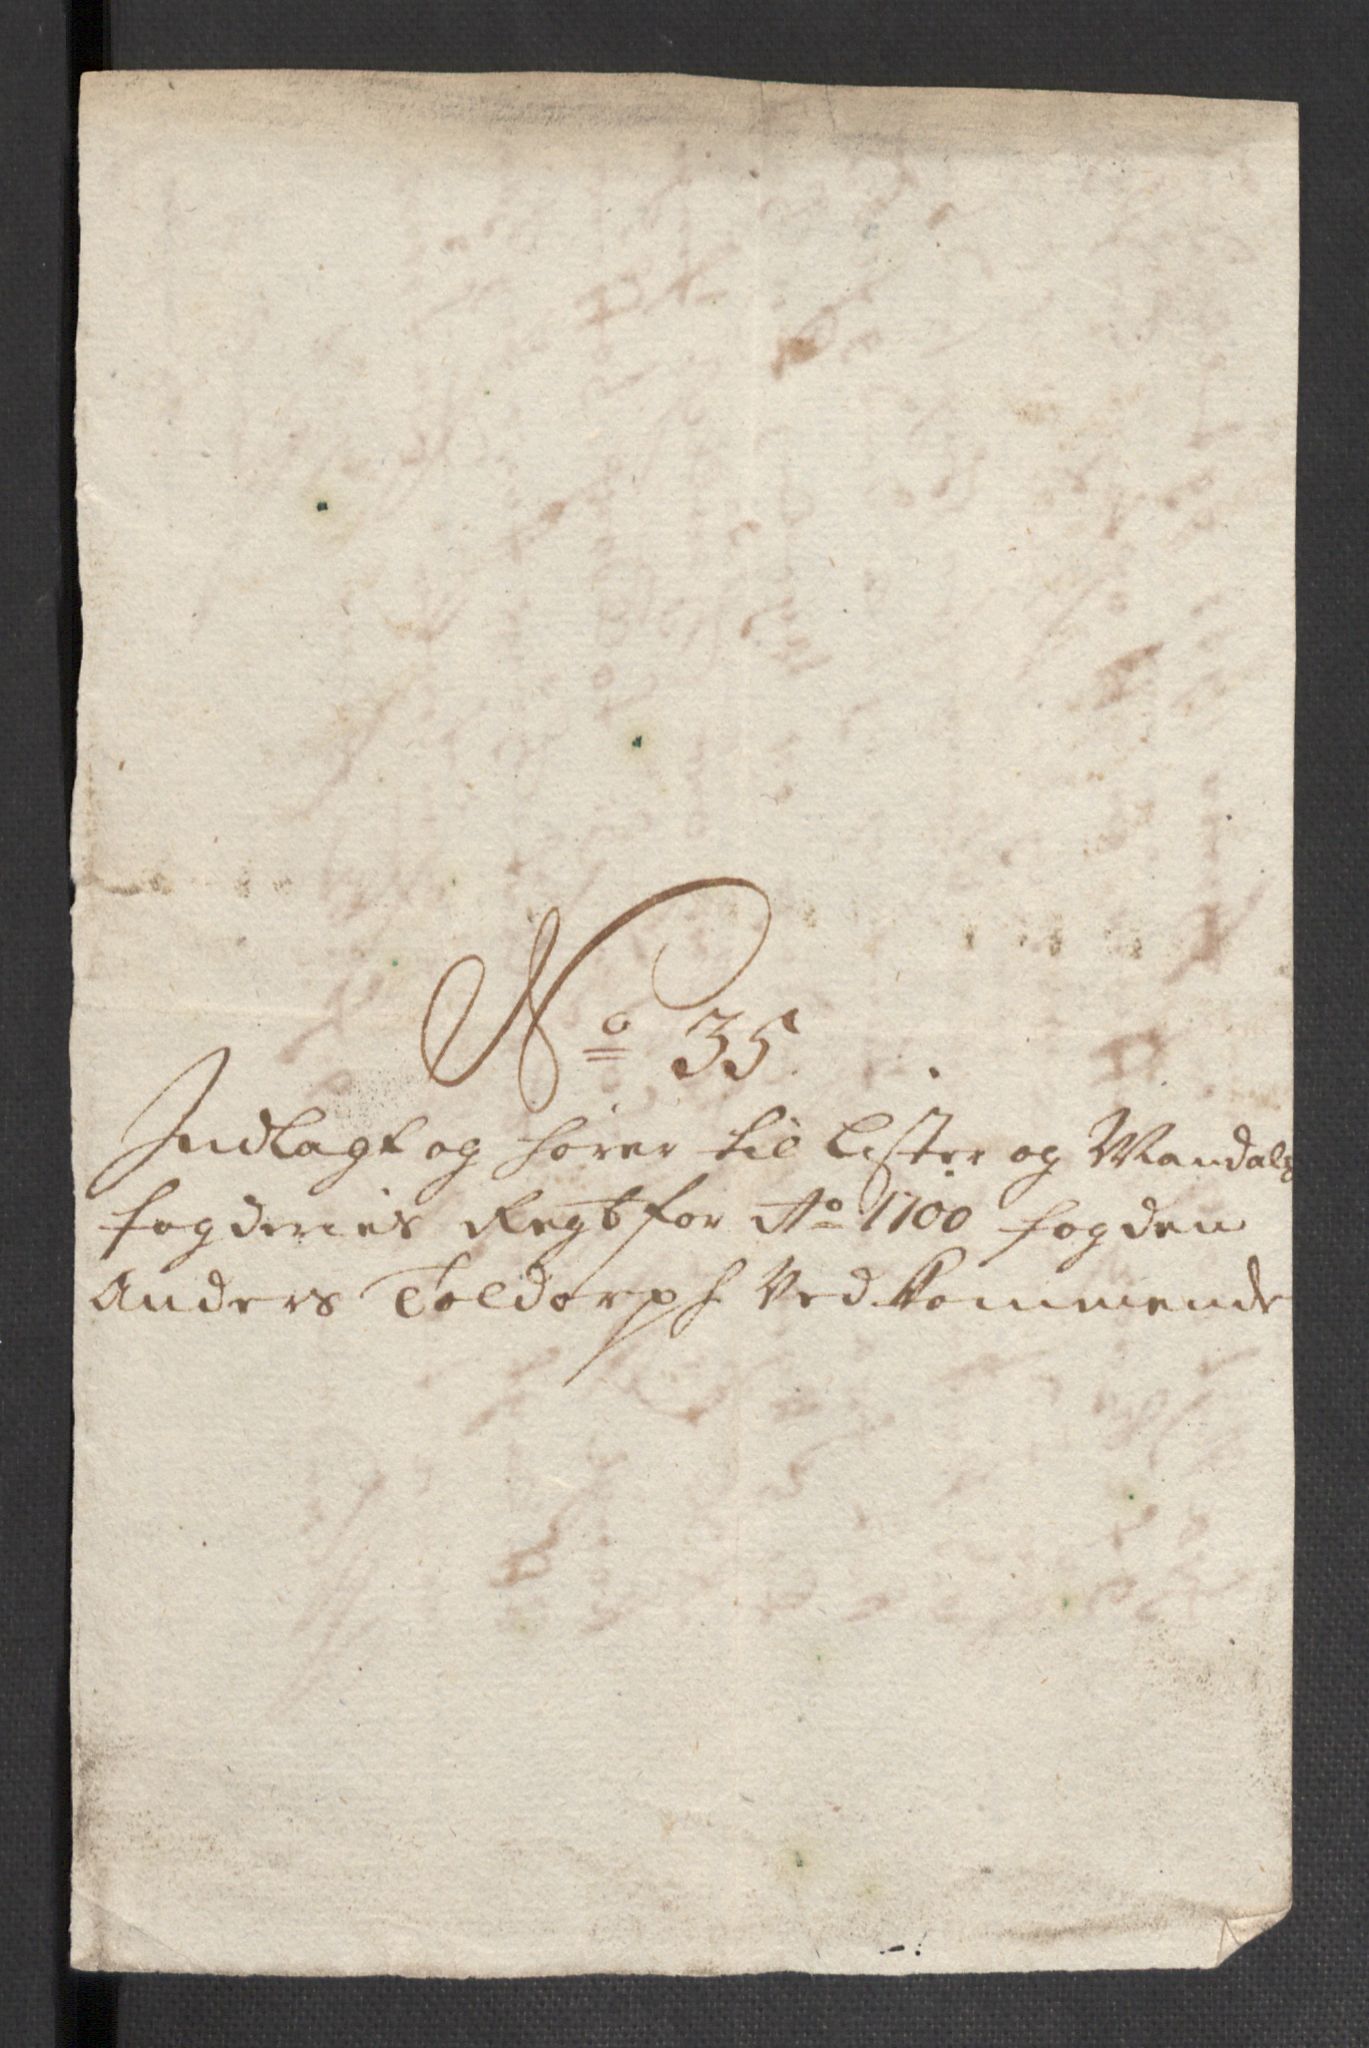 No 35
Indlagt og hører til Lister og Mandals
fogderies Regb for Ao 1700 fogden
Anders Toldorph Ved Kommende